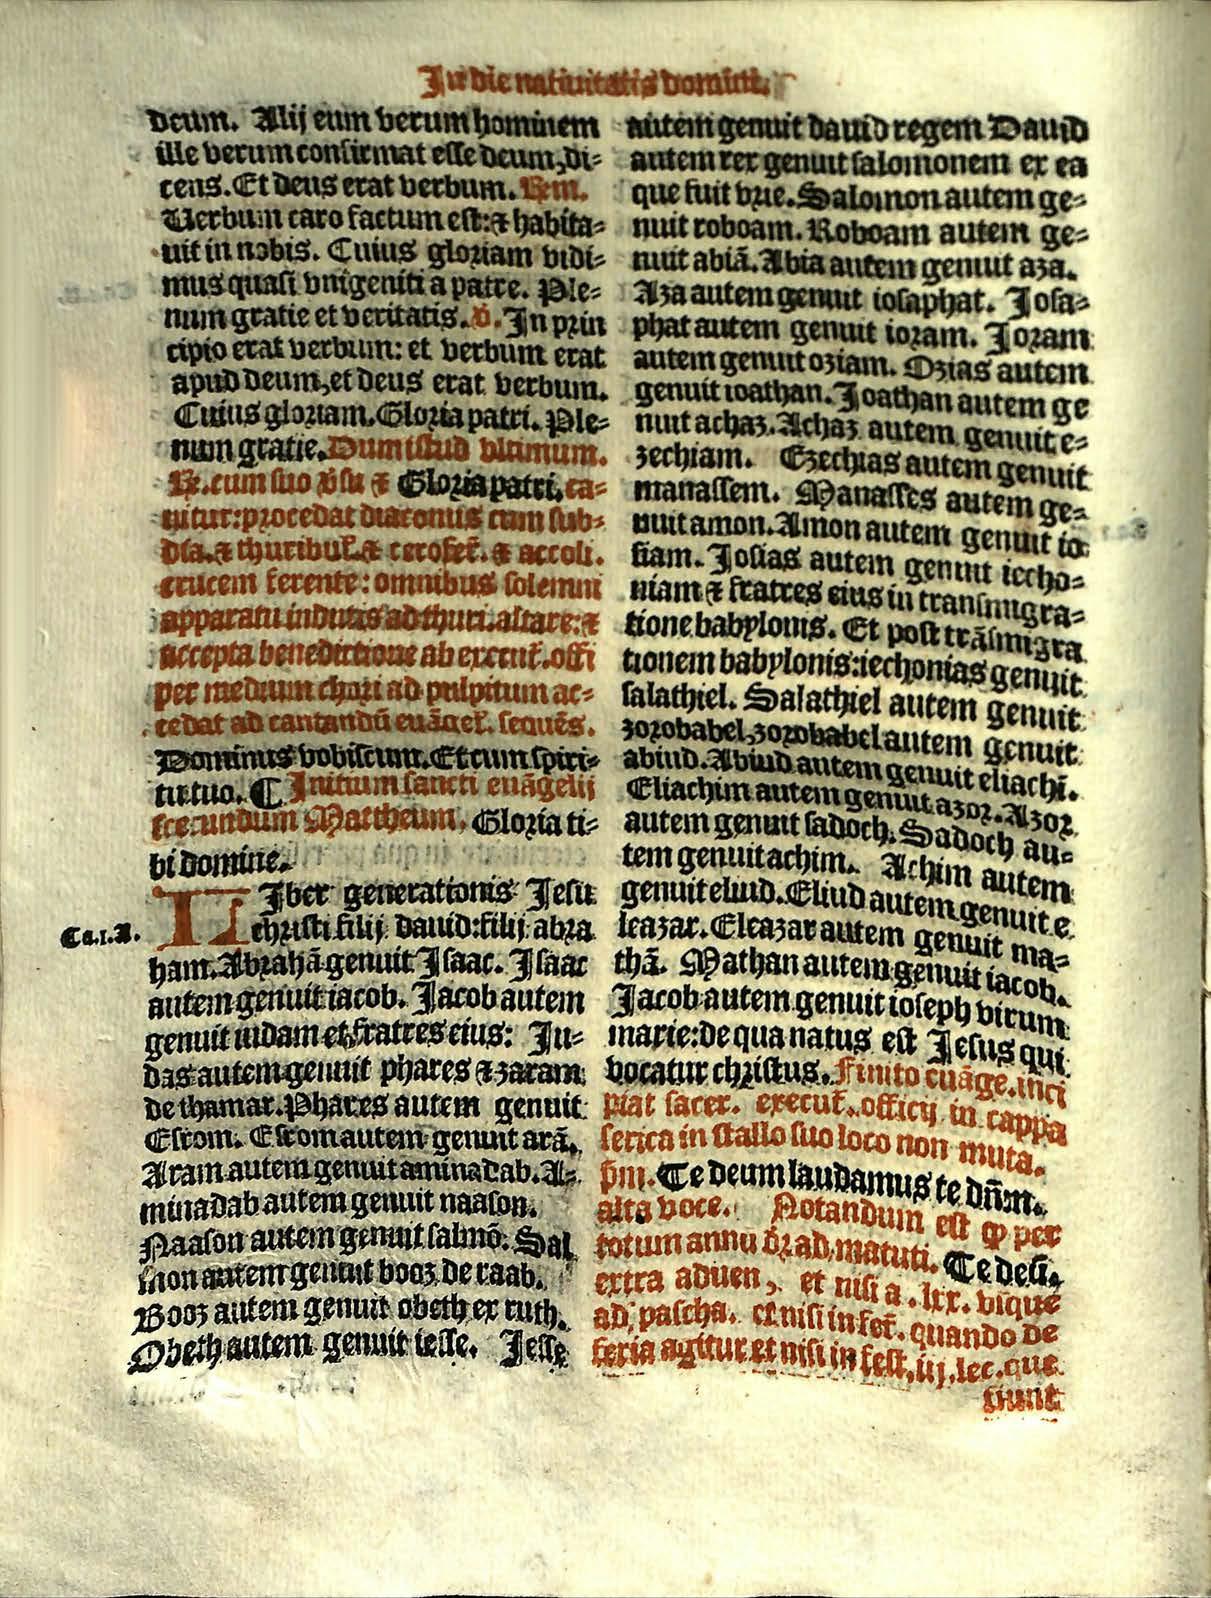 In die natiuitatis domini.
deum. Alij eum verum hominem
ille verum confirmat esse deum, di⸗
cens. Et deus erat verbum. Rm.
Uerbum caro factum est: ⁊ habita⸗
uit in nobis. Cuius gloriam vidi⸗
mus quasi vnigeniti a patre. Ple⸗
num gratie et veritatis. v. In prin
cipio erat verbum: et verbum erat
apud deum, et deus erat verbum.
Cuius gloriam. Gloria patri. Ple⸗
num gratie. Dum istud vltimum.
R. cum suo v̉su ⁊ Gloria patri, ca⸗
nitur: procedat diaconus cum sub⸗
dia. ⁊ thuribul̉. ⁊ cerofer̉. ⁊ accoli.
crucem ferente: omnibus solemni
apparatu indutis ad thuri. altare: ⁊
accepta benedictione ab execut̉. offi
per medium chori ad pulpitum ac⸗
cedat ad cantandū euāgel̉. sequēs.
Dominus vobiscum. Et cum spiri⸗
tu tuo. ¶ Initium sancti euāgelij
secundum Mattheum. Gloria ti⸗
bi domine.
LIber generationis Jesu
christi filij dauid: filij abra
Ca.i.A.
ham. Abrahā genuit Isaac. Isaac
autem genuit iacob. Jacob autem
genuit iudam et fratres eius: Ju⸗
das autem genuit phares ⁊ zaram
de thamar. Phares autem genuit
Esrom. Esrom autem genuit arā.
Aram autem genuit aminadab. A⸗
minadab autem genuit naason.
Naason autem genuit salmō. Sal
mon autem genuit booz de raab.
Booz autem genuit obeth ex ruth.
Obeth autem genuit iesse. Jesse
autem genuit dauid regem Dauid
autem rex genuit salomonem ex ea
que fuit vrie. Salomon autem ge⸗
nuit roboam. Roboam autem ge⸗
nuit abiā. Abia autem genuit aza.
Aza autem genuit iosaphat. Josa⸗
phat autem genuit ioram. Joram
autem genuit oziam. Ozias autem
genuit ioathan. Joathan autem ge
nuit achaz. Achaz autem genuit e⸗
zechiam. Ezechias autem genuit
manassem. Manasses autem ge⸗
nuit amon. Amon autem genuit io
siam. Josias autem genuit iecho⸗
niam ⁊ fratres eius in transmigra⸗
tione babylonis. Et post trāsmigra
tionem babylonis: iechonias genuit
salathiel. Salathiel autem genuit
zorobabel, zorobabel autem genuit
abiud. Abiud autem genuit eliachī.
Eliachim autem genuit azor. Azor
autem genuit sadoch. Sadoch au⸗
tem genuit achim. Achim autem
genuit eliud. Eliud autem genuit e
leazar. Eleazar autem genuit ma⸗
thā. Mathan autem genuit iacob.
Jacob autem genuit ioseph virum
marie: de qua natus est Jesus qui
vocatur christus. Finito euāge. inci
piat sacer. execut̉. officij in cappa
serica in stallo suo loco non muta.
p̄m. Te deum laudamus te dn̄m.
alta voce. Notandum est ꝙ per
totum annū dr̄ ad matuti. Te deū.
extra aduen, et nisi a .lxx. vsque
ad pascha. et nisi in fer̉. quando de
feria agitur et nisi in fest. iij. lec. que
fiunt